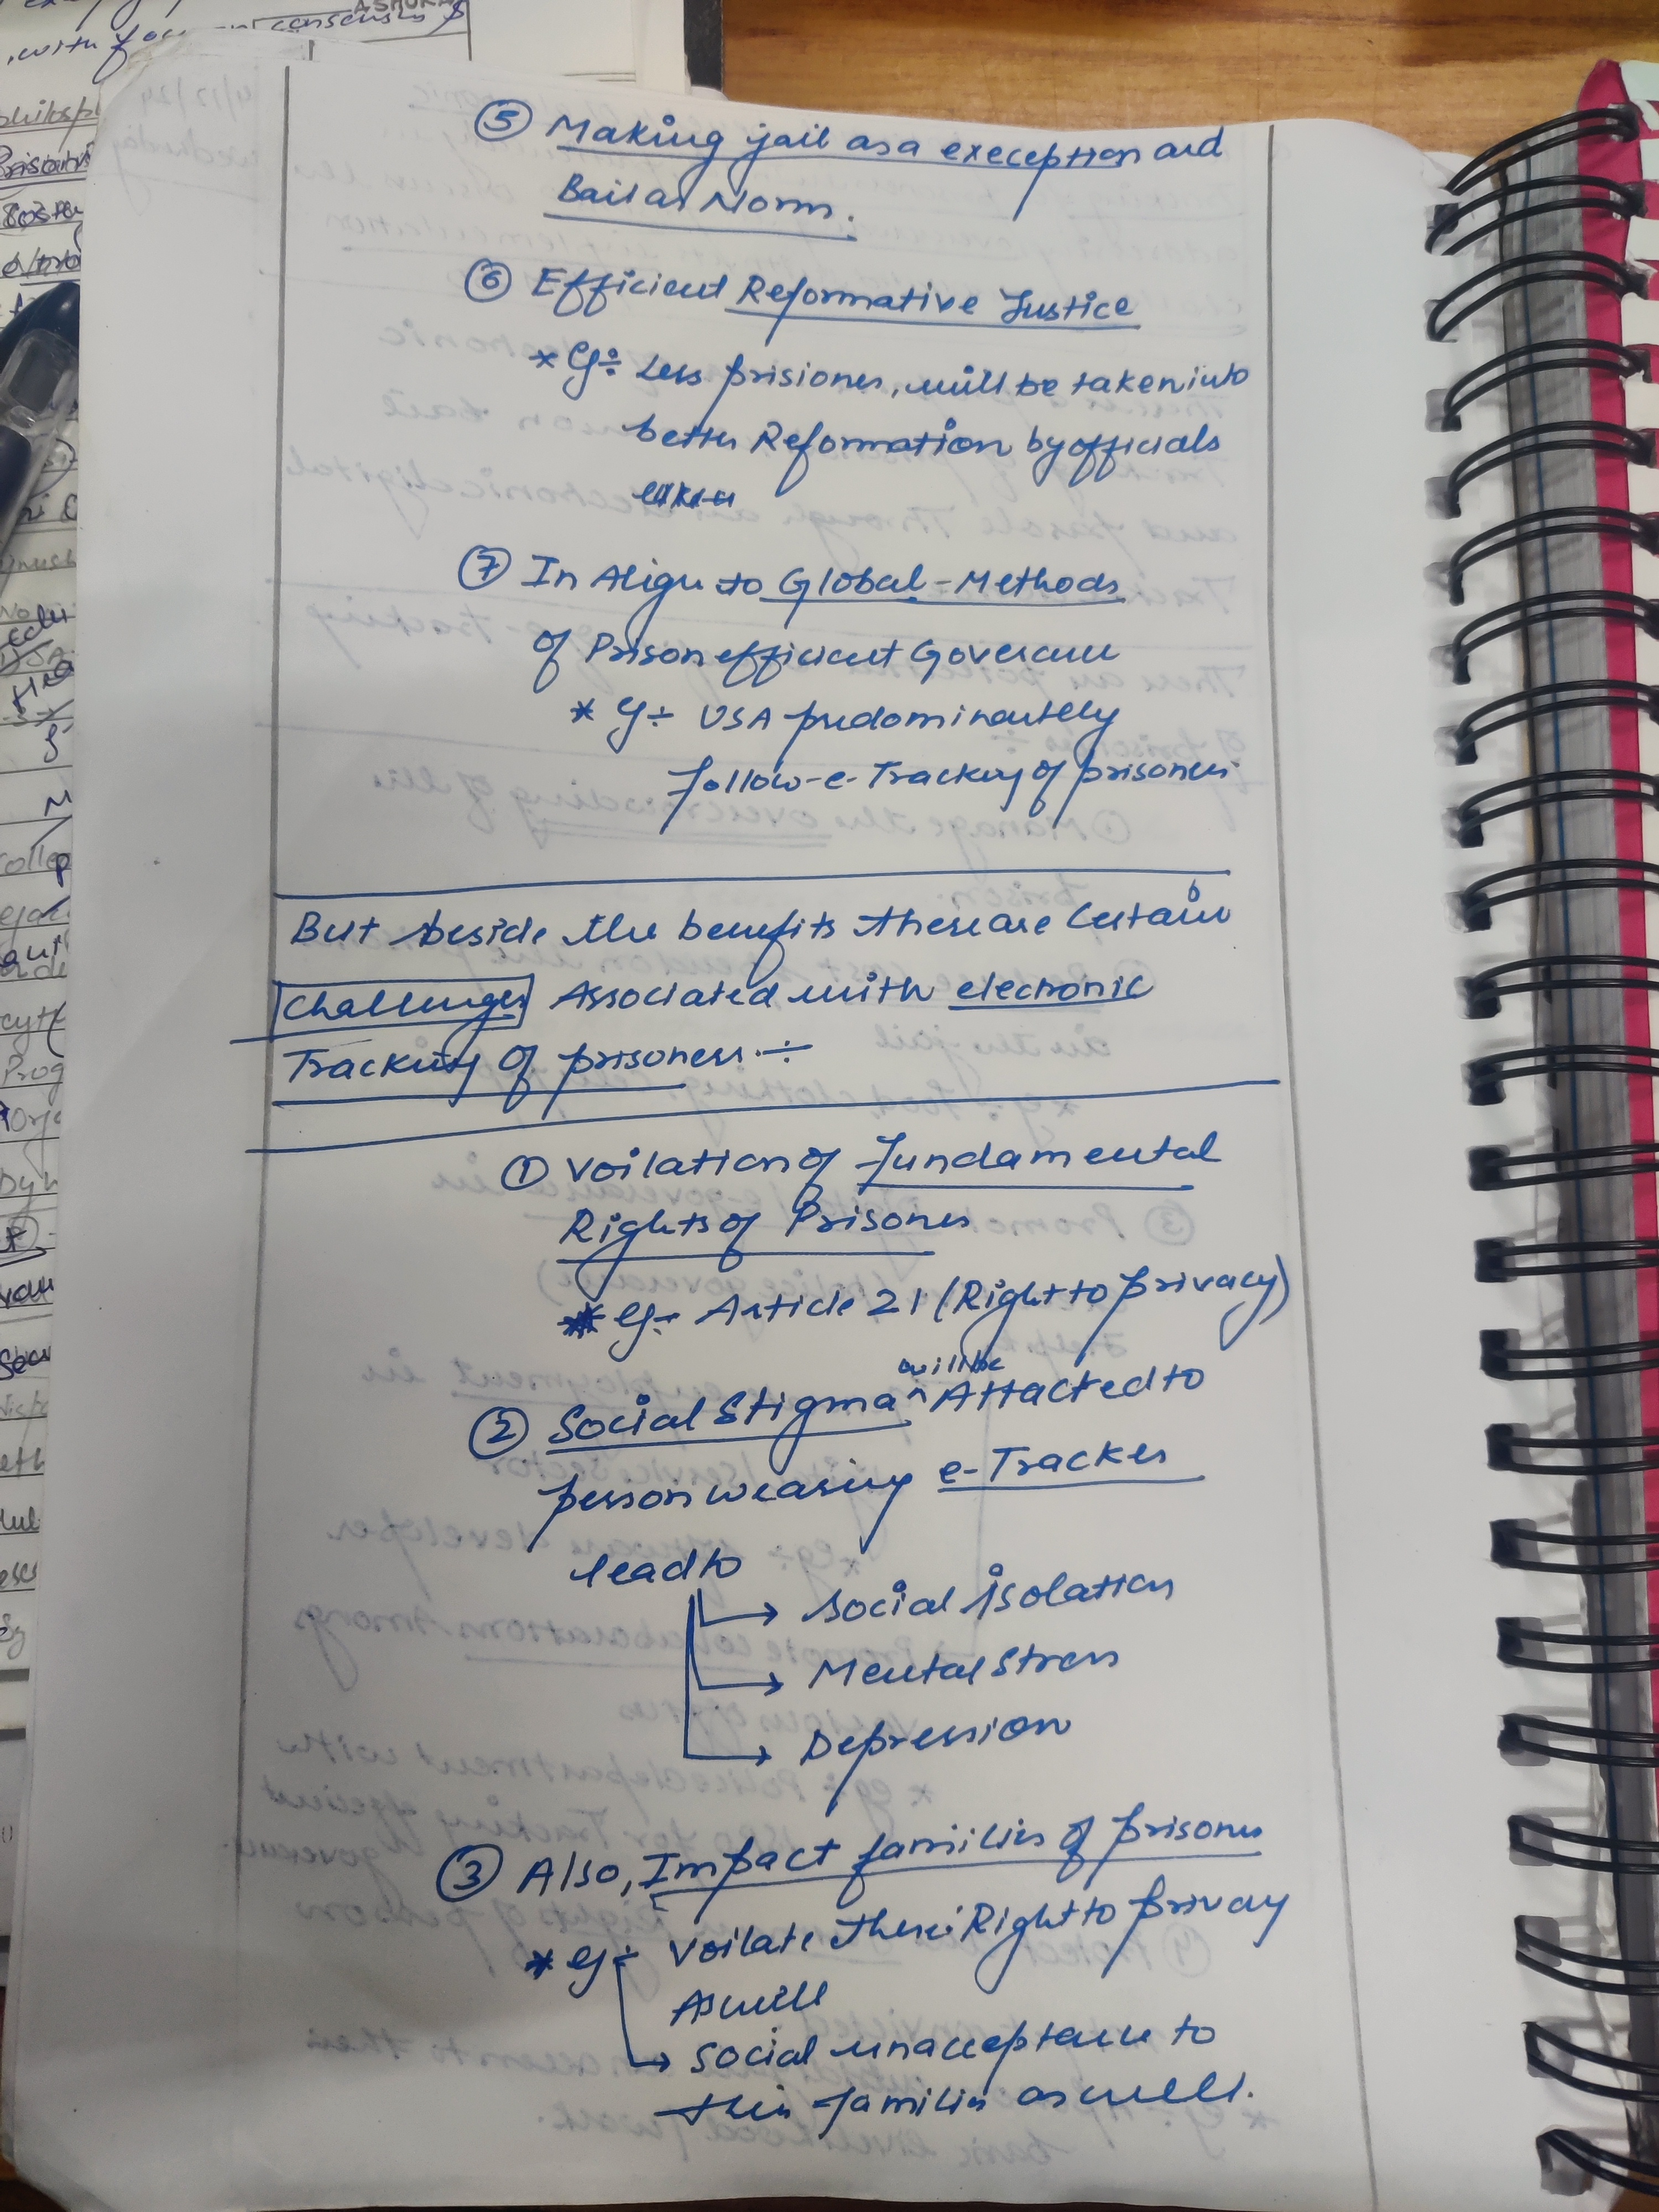 ⑤ Making jail as a exeception and
Bail as Norm.
⑥ Efficient Reformative Justice
* Eg÷ Less prisioners, will be taken into
better Reformation by officials
⑦ In Align to Global-Methods
of Prison efficient Governance
* Eg÷ USA predominantely
follow-e-Tracking of prisoners.
But beside the benefits there are Certain
Challenges Associated with electronic
Tracking of prisoners.÷
① Voilation of fundamental
Rights of Prisoners
* eg÷ Article 21 (Right to privacy)
will be
② Social Stigma ^ Attacted to
person wearing e-Tracker
lead to
→ Social isolation
→ Mental Stress
→ Depression
③ Also, Impact families of prisoners
* eg÷ Voilate their Right to privacy
As well
→ Social unacceptance to
their families as well.